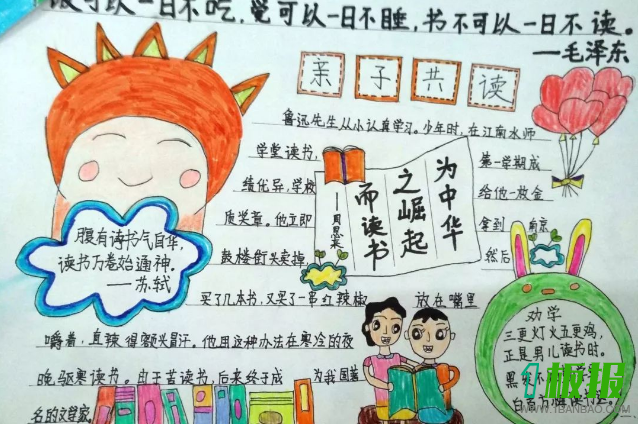 饭可以一日不吃,觉可以一日不睡,书不可以一日不读。
——毛泽东
亲子共读
鲁迅先生从小认真学习。少年时,在江南水师
学堂读书,
第一学期成
绩优异,学校
给他一
质奖章。他立即
拿到
南京
鼓楼街头卖掉,
然后
买了几本书,又买了一串红辣椒
放在嘴里
嚼着,直辣得额头冒汗。他用这种办法在寒冷的夜
晚驱寒读书。由于苦读书,后来终于成
为我国著
名的文学家。
为中华
之崛起
而读书
——周恩来
腹有诗书气自华,
读书万卷始通神。
——苏轼
劝学
三更灯火五更鸡,
正是男儿读书时。
黑发不
白首方
读书
1板报
WWW.1BANBAO.COM